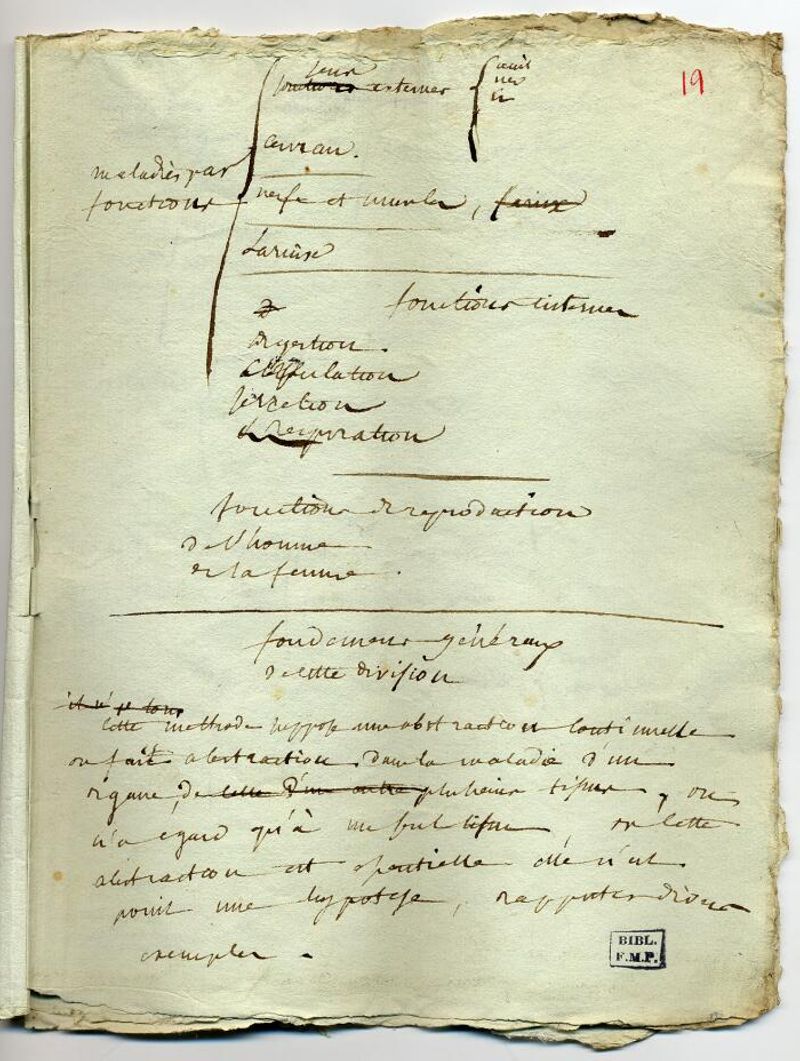 19
sens
fonctions externes
œuil
nez
cerveau.
maladies par
fonctions
nerfs et muscles,
Larinx
fonctions internes
digestion.
circulation
secretion
respiration
fonctions de reproduction
de l'homme
et la femme.
fondemens généraux
de cette division
cette methode suppose une abstraction continuelle
on fait abstraction dans la maladie d'un
organe, de cette d'un autre plusieurs tissus, on
n'a egard qu'à un seul tissu, or cette
abstraction est essentielle elle n'est
point une hypotese, rapporter divers
exemples.
BIBL.
F.M.P.